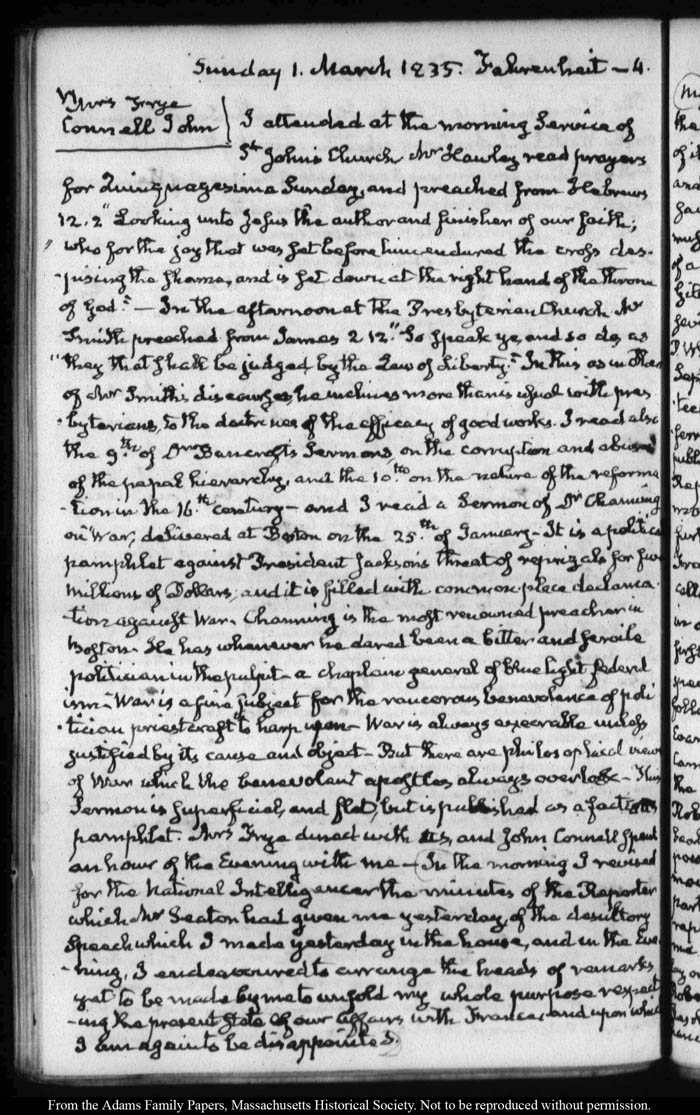 Sunday 1. March 1835. Fahrenheit – 4.
Mrs Frye
Connell John
I attended at the morning Service of
St Johns Church Mr Hawley read prayers
for Quinquagesima Sunday, and preached from Hebrews
12. 2 "Looking unto Jesus the author and finisher of our faith;
" who for the joy that was set before him endured the cross des-
-pising the shame, and is set down at the right hand of the throne
of God." — In the afternoon at the Presbyterian Church Mr
Smith preached from James 2 12 "So speak ye, and so do, as
" they that shall be judged by the Law of Liberty." In this as in other
of Mr Smith's discourses, he inclines more than is usual with pres
-byterians, to the doctrines of the efficacy of good works. I read also
the 9th of Dr Bancroft's Sermons, on the corruption and abuses
of the papal hierarchy, and the 10th on the nature of the reforma
-tion in the 16th century – and I read a Sermon of Dr Channing
on War, delivered at Boston on the 25th of January – It is a political
pamphlet against President Jackson's threat of reprizals for five
Millions of Dollars; and it is filled with common place declama-
-tion against War. Channing is the most renowned preacher in
Boston – He has whenever he dared been a bitter and servile
politician in the pulpit – a chaplain general of blue light federal
ism – War is a fine subject for the rancorous benevolence of poli
-tician priestcraft to harp upon – War is always execrable unless
justified by its cause and object – But there are philosophical views
of War which the benevolent apostles always overlook – This
Sermon is superficial, and flat, but is published as a factious
pamphlet. Mrs Frye dined with us, and John Connell spent
an hour of the Evening with me – In the morning I revised
for the National Intelligencer the minutes of the Reporter
which Mr Seaton had given me yesterday, of the desultory
Speech which I made yesterday in the house, and in the Eve-
-ning, I endeavoured to arrange the heads of remarks
yet to be made by me to unfold my whole purpose respect
-ing the present State of our affairs with France, and upon which
I am again to be disappointed.
From the Adams Family Papers, Massachusetts Historical Society. Not to be reproduced without permission.